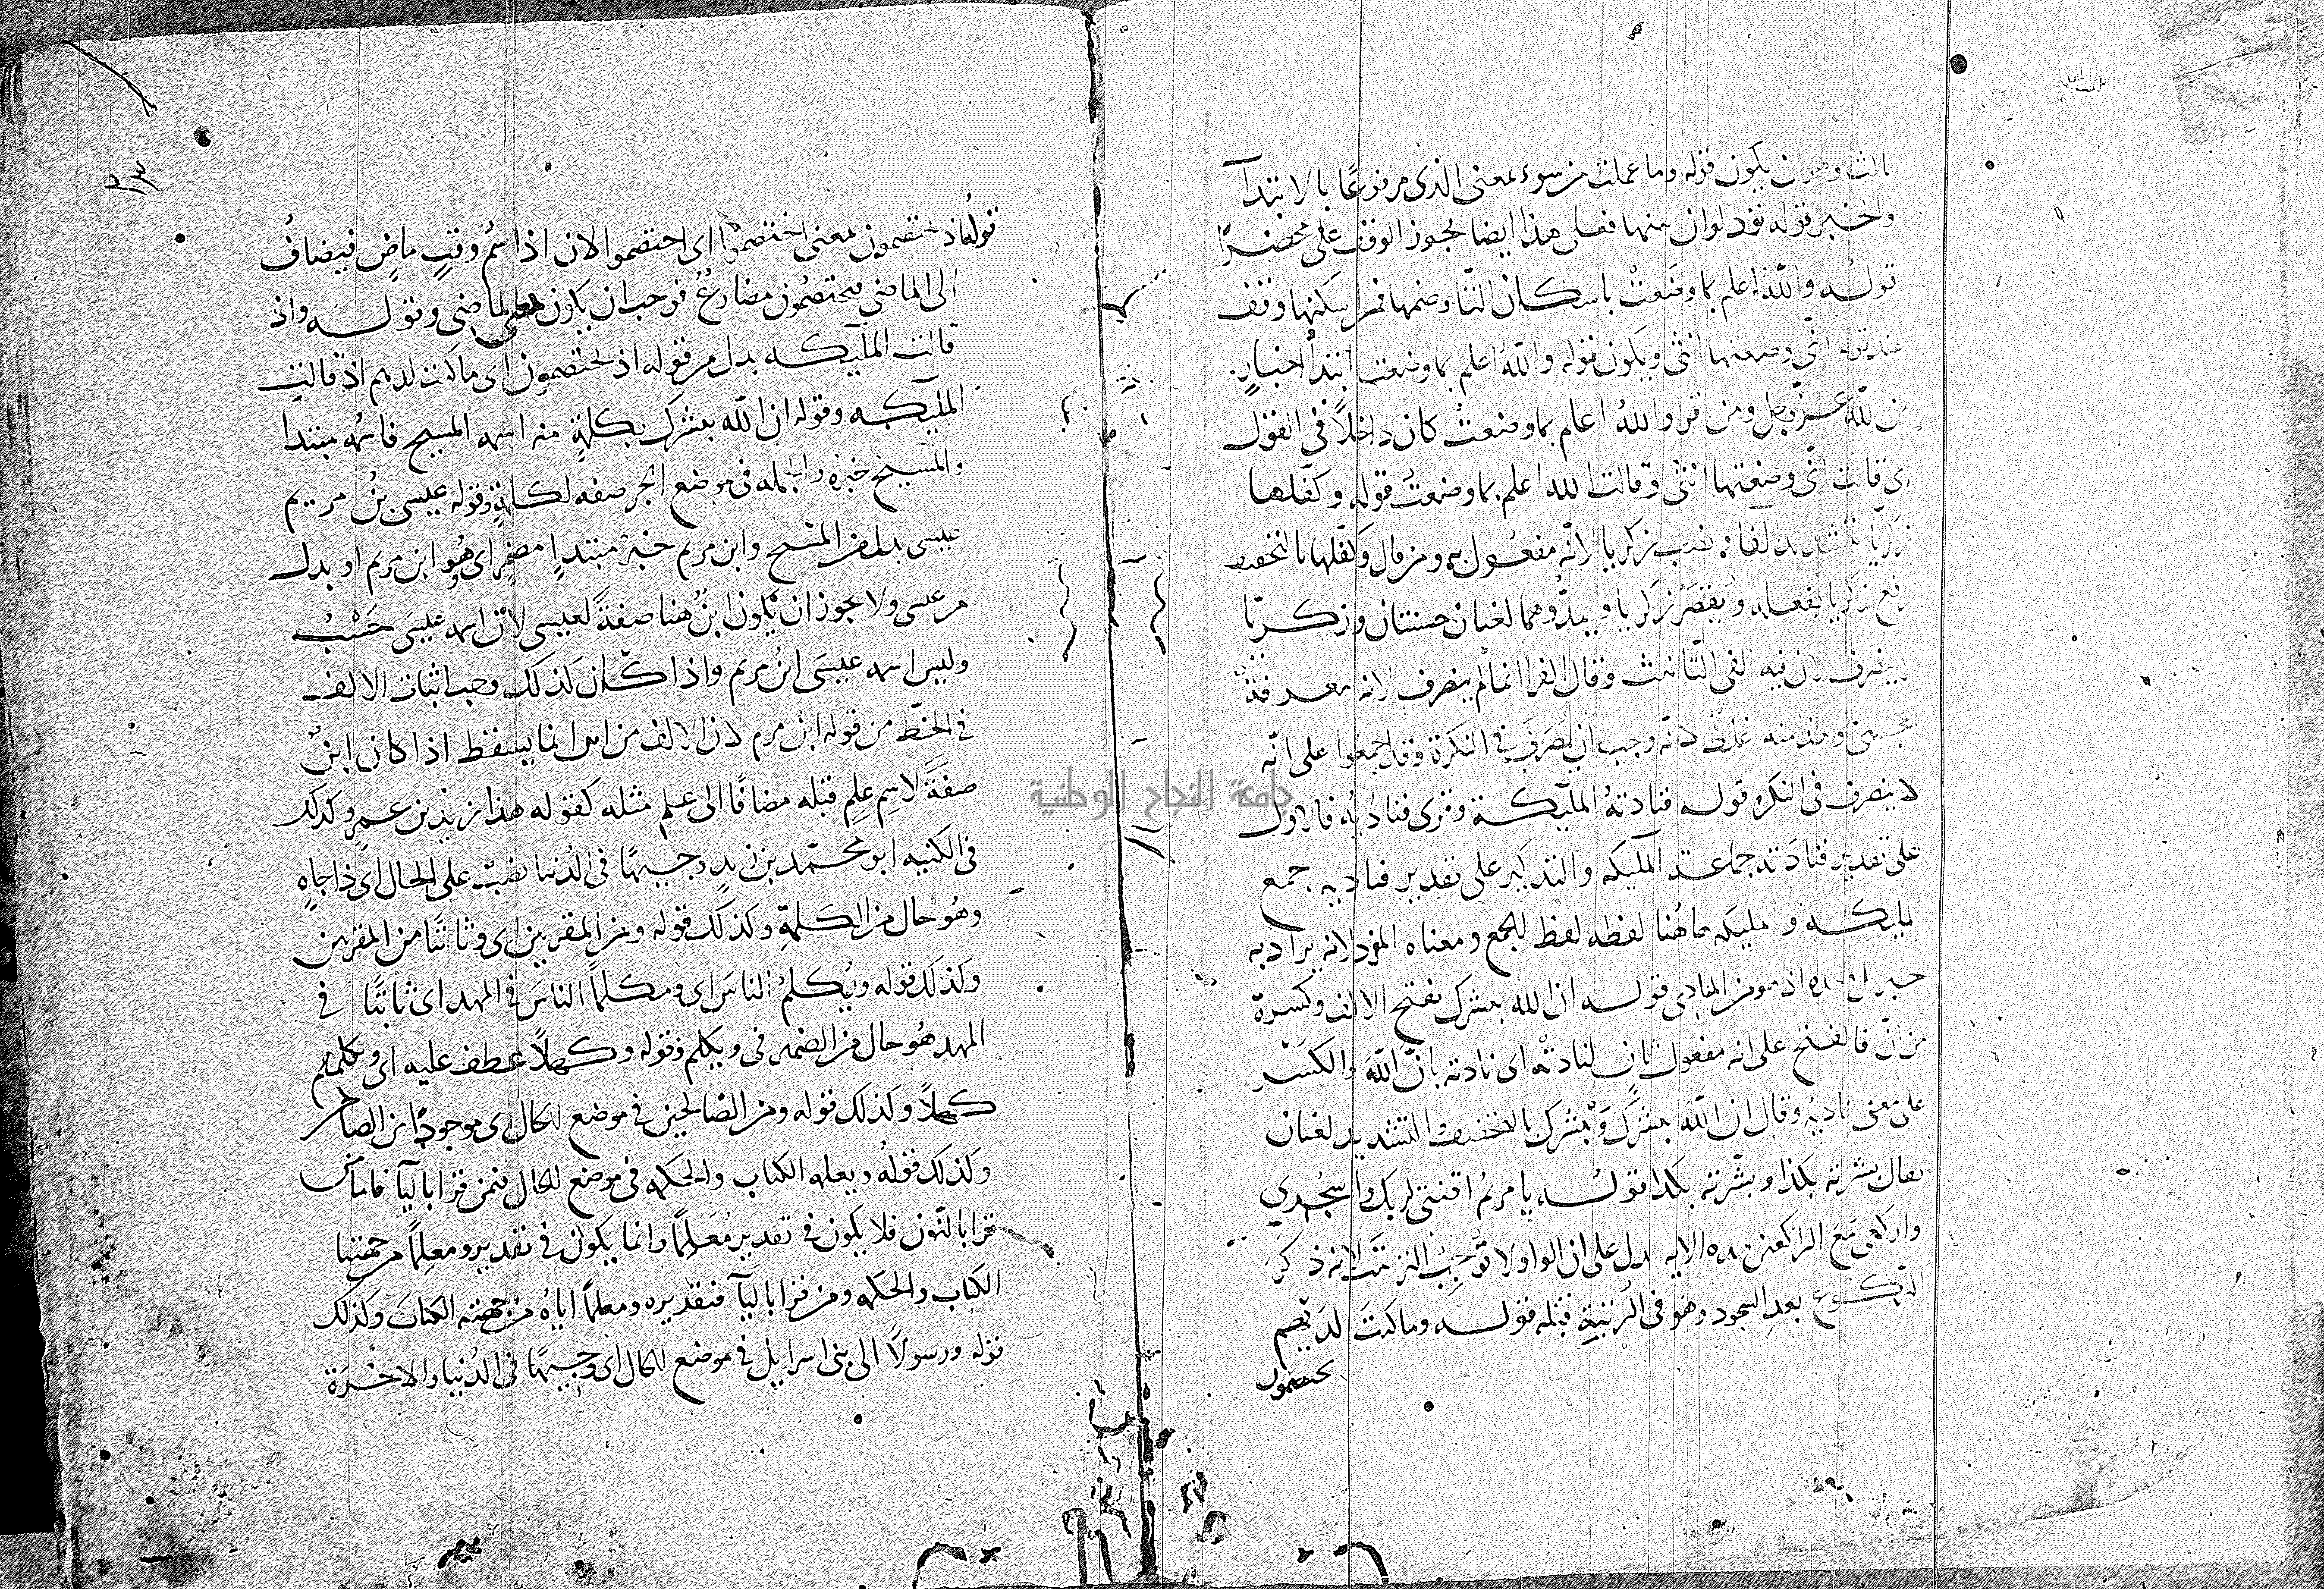 ثالث وهو ان يكون قوله وما عملت من سوء بمعنى الذى مرفوعًا بالابتدآ
والخبر قوله تود لو ان بينها فعلى هذا ايضا يجوز الوقف على محضرًا
قوله والله اعلم بما وضعت باسكان التا وضمها فمن اسكنها وقف
عند قوله انى وضعتها انثى ويكون قوله والله اعلم بما وضعت ابتدأ اخبار
من الله عز وجل ومن قرا والله اعلم بما وضعت كان داخلاً فى القول
اى قالت انى وضعتها انثى وقالت الله اعلم بما وضعت قوله وكفلها
زكريا بتشديد الفاء نصب زكريا لانه مفعول به ومن قال وكفلها بالتخفيف
رفع زكريا بفعله ويقصر زكريا ويمد وهما لغتان حسنتان وزكريا
لا ينصرف لان فيه الفى التانيث وقال الفرا انما لم ينصرف لانه معرفة
عجمى وهذا منه غلط لانه وجب ان يصرف فى النكرة وقد اجمعوا على انه
لا ينصرف فى النكره قوله فنادته المليكة وقرى فناديه فالاول
على تقدير فنادته جماعة المليكه والتذكير على تقدير فناديه جمع
المليكه والمليكه هاهنا لفظه لفظ الجمع ومعناه المفرد لانه يراد به
جبريل وحده اذ هو من المنادى قوله ان الله يبشرك بفتح الالف وكسرة
من ان فالفتح على انه مفعول ثان لنادته اى نادته بان الله والكسر
على معنى ناديه وقال ان الله يبشرك ويبشرك بالتخفيف والتشديد لغتان
يقال بشرته بكذا وبشّرته بكذا قوله يا مريم اقنتى لربك واسجدى
واركعى مع الراكعين هذه الايه يدل على ان الواو لا توجب الترتيب لانه ذكر
الركوع بعد السجود وهو فى الرتبة قبله قوله وما كنت لديهم
يختصمون
جامعة النجاح الوطنية
٣٣
قوله اذ يختصمون بمعنى اختصموا اى اختصموا لان اذا اسم وقت ماض فيضاف
الى الماضى فيختصمون مضارع فوجب ان يكون بمعنى الماضى وقوله واذ
قالت المليكه بدل من قوله اذ يختصمون اى ما كنت لديهم اذ قالت
المليكه وقوله ان الله يبشرك بكلمة منه اسمه المسيح فاسمه مبتدا
والمسيح خبره والجمله فى موضع الجر صفه لكلمة وقوله عيسى بن مريم
عيسى بدل من المسيح وابن مريم خبر مبتدا مضمر اى هو ابن مريم او بدل
من عيسى ولا يجوز ان يكون ابن هنا صفة لعيسى لان اسمه عيسى حسب
وليس اسمه عيسى ابن مريم واذا كان كذلك وجب اثبات الالف
فى الخط من قوله ابن مريم لان الالف من ابن انما يسقط اذا كان ابن
صفة لاسم علم قبله مضافًا الى علم مثله كقوله هذا زيد بن عمرو وكذلك
فى الكنيه ابو محمد بن زيد وجيهًا فى الدنيا نصب على الحال اى ذا جاه
وهو حال من الكلمة وكذلك قوله ومن المقربين اى وثابتًا من المقربين
وكذلك قوله ويكلم الناس اى ومكلمًا الناس فى المهد اى ثابتًا فى
المهد هو حال من الضمير فى ويكلم وقوله وكهلاً عطف عليه اى ويكلمهم
كهلاً وكذلك قوله ومن الصالحين فى موضع الحال اى موجودًا من الصالحين
وكذلك قوله ويعلمه الكتاب والحكمه فى موضع الحال فمن قرا باليآ فاما من
قرا بالنون فلا يكون فى تقدير مُعَلِمًا وانما يكون فى تقدير ومعلمًا من جهتنا
الكتاب والحكمه ومن قرا باليآ فتقديره ومعلمًا اياه من جهته الكتاب وكذلك
قوله ورسولاً الى بنى اسرايل فى موضع الحال اى وجيهًا فى الدنيا والاخرة